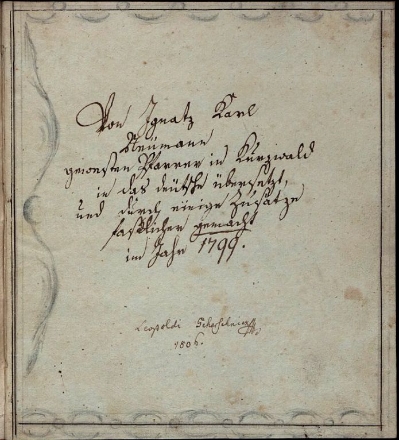 Von Ignatz Karl
Neumann
gewesten Pfarrer in Kurzwald
in das deutsche übersetzt,
und durch einige Zusätze
faßlicher gemacht
im Jahr 1799.
Leopoldi Scherschnik
1806.